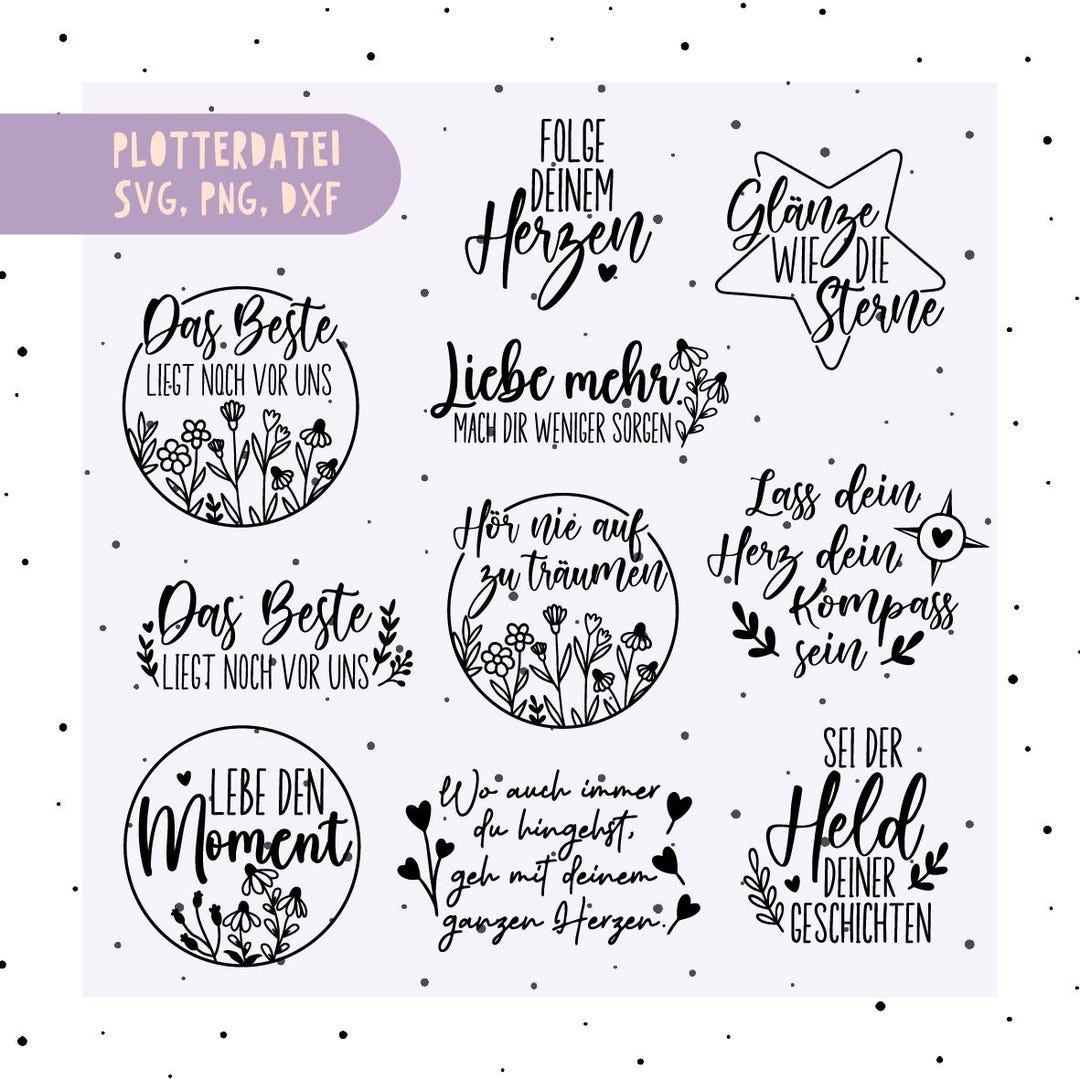 PLOTTERDATEI
SVG, PNG, DXF
FOLGE
DEINEM
Herzen
Glänze
WIE DIE
Sterne
Das Beste
LIEGT NOCH VOR UNS
Liebe mehr.
MACH DIR WENIGER SORGEN
Hör nie auf
zu träumen
Lass dein
Herz dein
Kompass
sein
Das Beste
LIEGT NOCH VOR UNS
LEBE DEN
Moment
Wo auch immer
du hingehst,
geh mit deinem
ganzen Herzen.
SEI DER
Held
DEINER
GESCHICHTEN